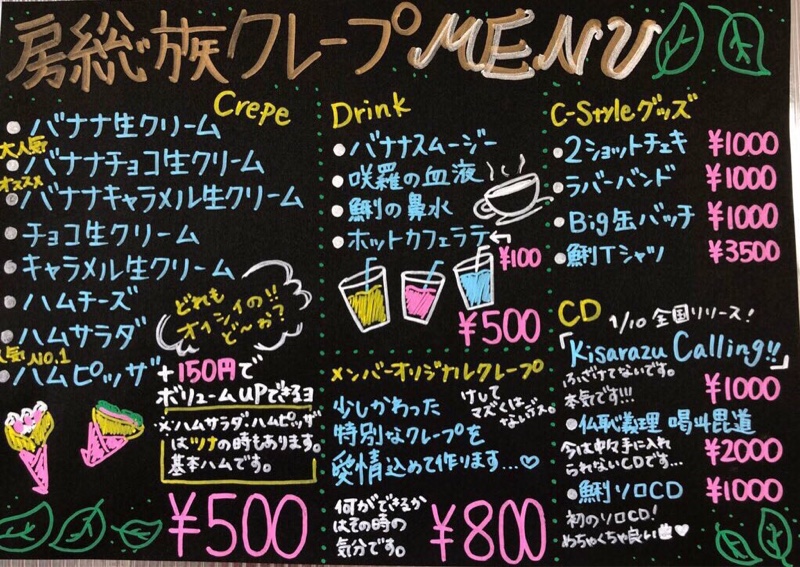 房総族クレープMENU
Crepe
バナナ生クリーム
大人気
バナナチョコ生クリーム
オススメ
バナナキャラメル生クリーム
チョコ生クリーム
キャラメル生クリーム
ハムチーズ
ハムサラダ
人気NO.1
ハムピッザ
どれも
オイシイの!!
ど〜お?
+150円で
ボリュームUPできるヨ
※ハムサラダ・ハムピッザ
はツナの時もあります。
基本ハムです。
¥500
Drink
バナナスムージー
咲羅の血液
鯏の鼻水
ホットカフェラテ
¥100
¥500
メンバーオリジナルクレープ
少しかわった
けして
マズくは
ないデス。
特別なクレープを
愛情込めて作ります...♡
何ができるか
はその時の
気分です。
¥800
C-Styleグッズ
2ショットチェキ ¥1000
ラバーバンド ¥1000
Big缶バッチ ¥1000
鯏Tシャツ ¥3500
CD 1/10 全国リリース!
「Kisarazu Calling!!」
ふざけてないです。
本気です!!! ¥1000
仏恥義理 喝斗毘道
今は中々手に入れ
られないCDです... ¥2000
鯏ソロCD ¥1000
初のソロCD!
めちゃくちゃ良い